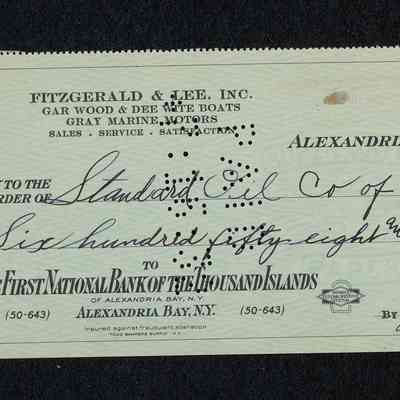 FITZGERALD & LEE, INC.
GAR WOOD & DEE WITE BOATS
GRAY MARINE MOTORS
SALES . SERVICE . SATISFACTION
ALEXANDRIA
Y TO THE
RDER OF Standard Oil Co of
Six hundred fifty eight
TO
FIRST NATIONAL BANK OF THE THOUSAND ISLANDS
OF ALEXANDRIA BAY, N.Y.
(50-643) ALEXANDRIA BAY, N.Y. (50-643)
BY
Insured against fraudulent alteration